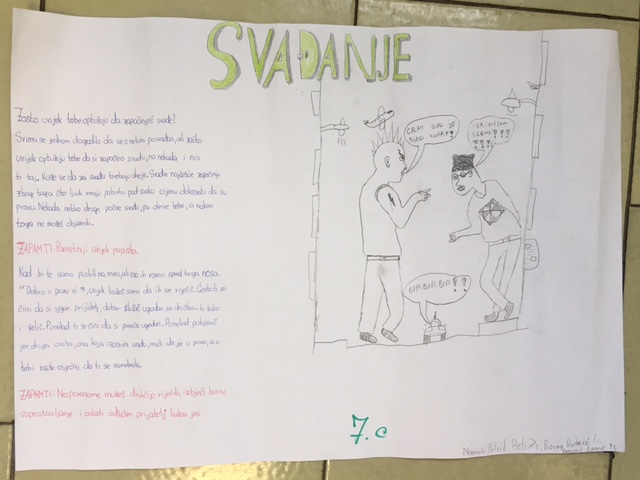 SVAĐANJE
Zašto uvijek tebe optužuju da započinješ svađe?
Svima se jednom dogodilo da se s nekim posvađao, ali zašto
uvijek optužuju tebe da si započeo svađu, no nekada i nisi
ti taj. Kaže se da za svađu trebaju dvoje. Svađe najčešće započinju
zbog toga što ljudi imaju potrebu pod svaku cijenu dokazati da su
pravu. Nekada netko drugi počne svađu, pa okrive tebe, a nakon
toga ne možeš objasniti.
ZAPAMTI: Pametniji uvijek popušta.
Kad bi te samo pustili na miru, ali iso ih ravno ispred tvoga nosa.
"Dobro si pravo si", uvijek kažeš samo da ih se riješiš. Često ti se
čini da si sjajan prijatelj, dobar ugodan za društvo i ti tako
i želiš. Ponekad ti se čini da si previše ugodan. Ponekad pobjesniš
jer druga osoba, ona koja izaziva svađu, misli da je u pravu, a u
tebi raste osjećaj da ti se nametnula.
ZAPAMTI: Nesporazume možeš drukčije riješiti, izbjeći burno
suprostavljanje i ostati odličan prijatelj kakav jesi.
CRNI OVO JE
MOJ KVART!
SA NISAM
CRNI!
BIP, BIP, BIP!
7.c
Napravili: Patrik 7.c, Borna